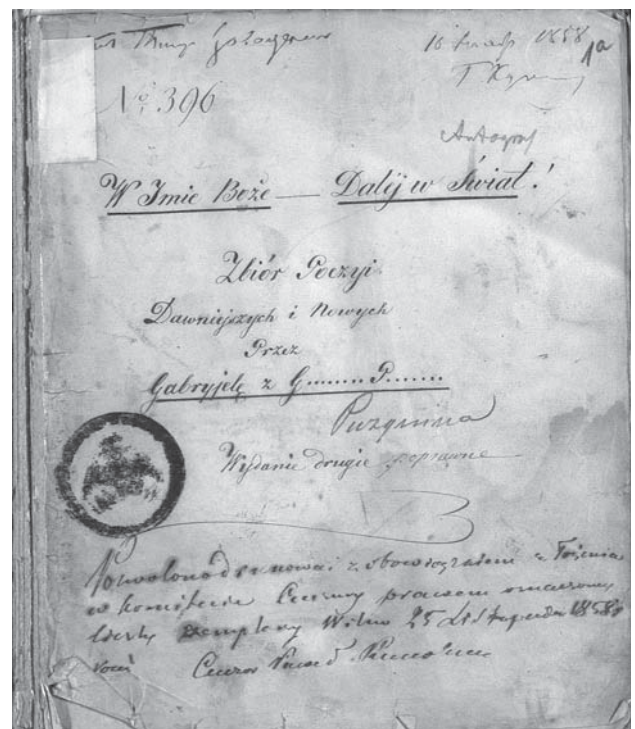 16 1858 1a
T
№ 396
Autograf
W Imie Boże — Dalėj w Świat!
Zbiór Poezyi
Dawniejszych i Nowych
Przez
Gabryjelę z G......P......
Puzynina
Wydanie drugie poprawne
Pozwolono drukować z obowiązkiem złożenia
w Komitecie Cenzury prawem oznaczoną
liczbę exemplarzy Wilno 25 Listopada 1858
roku Cenzor Paweł Kukolnik